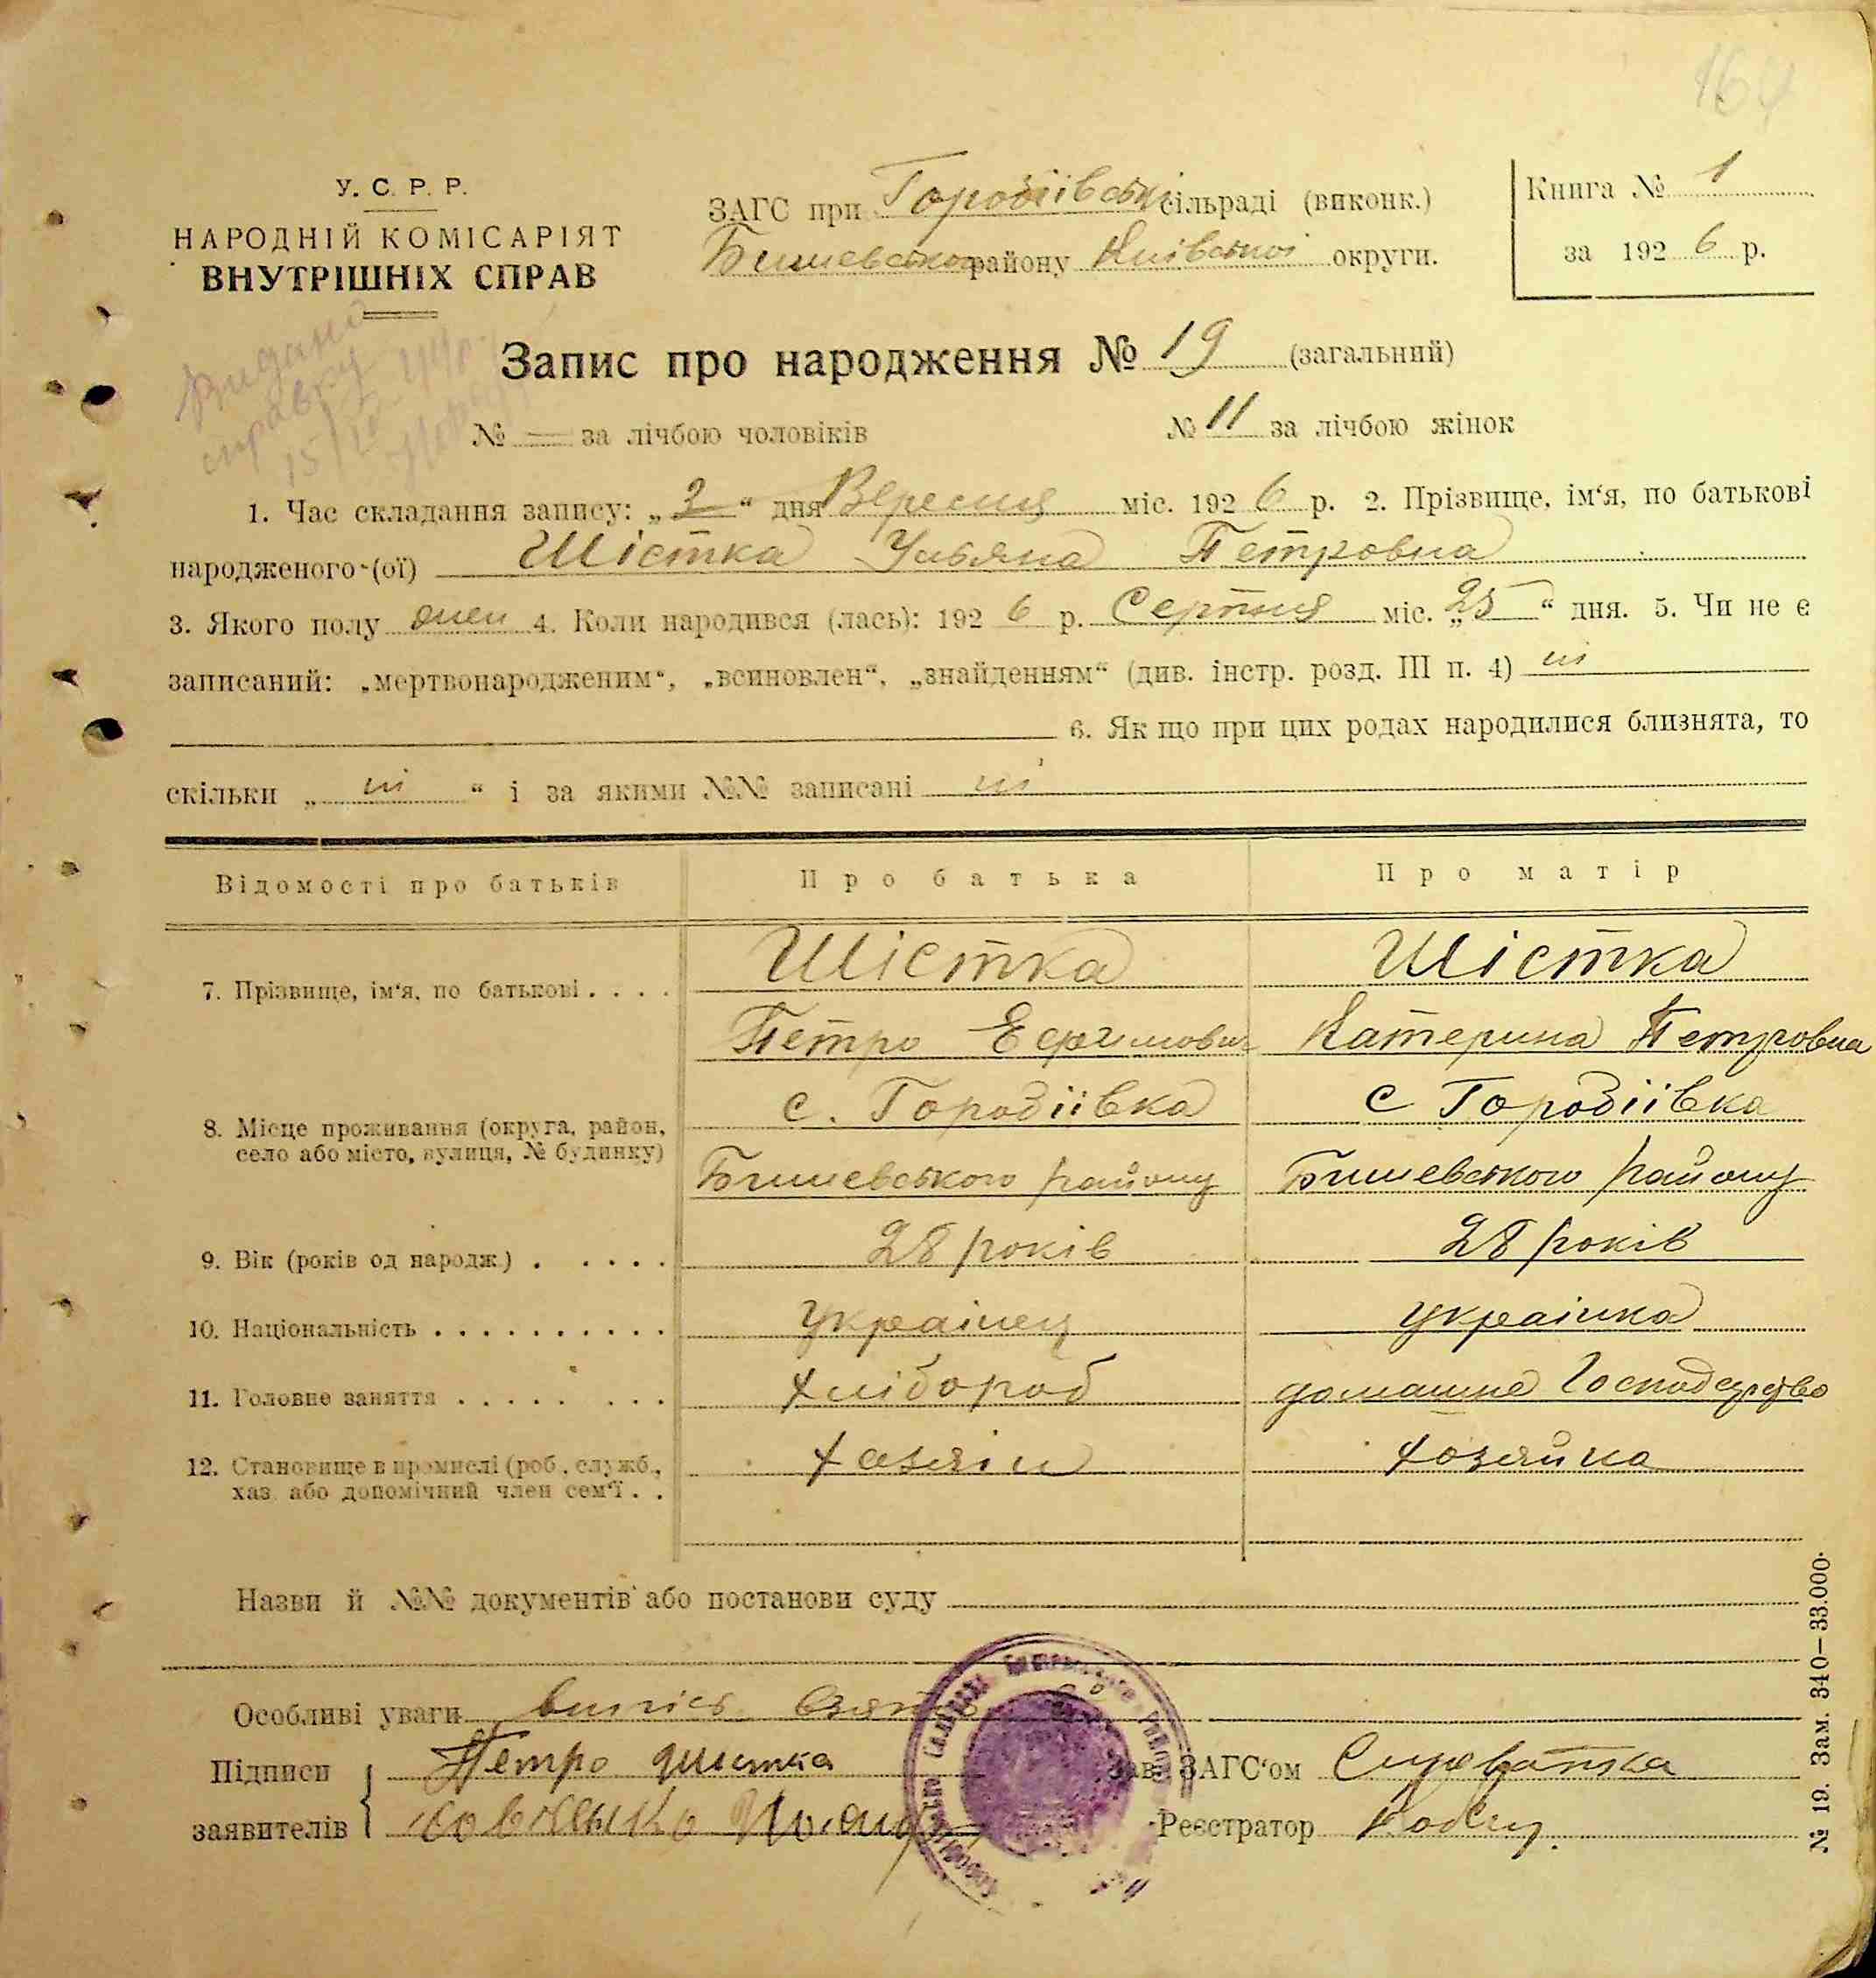 164
У. С. Р. Р.
НАРОДНІЙ КОМІСАРІЯТ
ВНУТРІШНІХ СПРАВ
ЗАГС при Городіївські сільраді (виконк.)
Бишевського району Київської округи.
Книга № 1
за 1926 р.
Видано
справку
Запис про народження № 19 (загальний)
№ — за лічбою чоловіків № 11 за лічбою жінок
1. Час складання запису: „2“ дня Вересня міс. 1926 р. 2. Прізвище, ім‘я, по батькові
народженого-(ої) Шістка Ульяна Петровна
3. Якого полу жен 4. Коли народився (лась): 1926 р. Серпня міс. „25“ дня. 5. Чи не є
записаний: „мертвонародженим“, „всиновлен“, „знайденням“ (див. інстр. розд. III п. 4) ні
6. Як що при цих родах народилися близнята, то
скільки „ ні “ і за якими №№ записані ні
Відомості про батьків Про батька Про матір
7. Прізвище, ім‘я, по батькові . . . . Шістка Шістка
Петро Ефимович Катерина Петровна
8. Місце проживання (округа, район, село або місто, вулиця, № будинку) с. Городіївка с Городіївка
Бишевського району Бишевського району
9. Вік (років од народж.) . . . . . 28 років 28 років
10. Національність . . . . . . . . . . українец українка
11. Головне заняття . . . . . . . . хлібороб домашнє Господарство
12. Становище в промислі (роб., служб., хаз. або допомічний член сем‘ї . . хазяін хозяйка
Назви й №№ документів або постанови суду
Особливі уваги
Підписи заявителів { Петро Шистка
Зав. ЗАГС‘ом
Реєстратор
№ 19. Зам. 340—33.000.